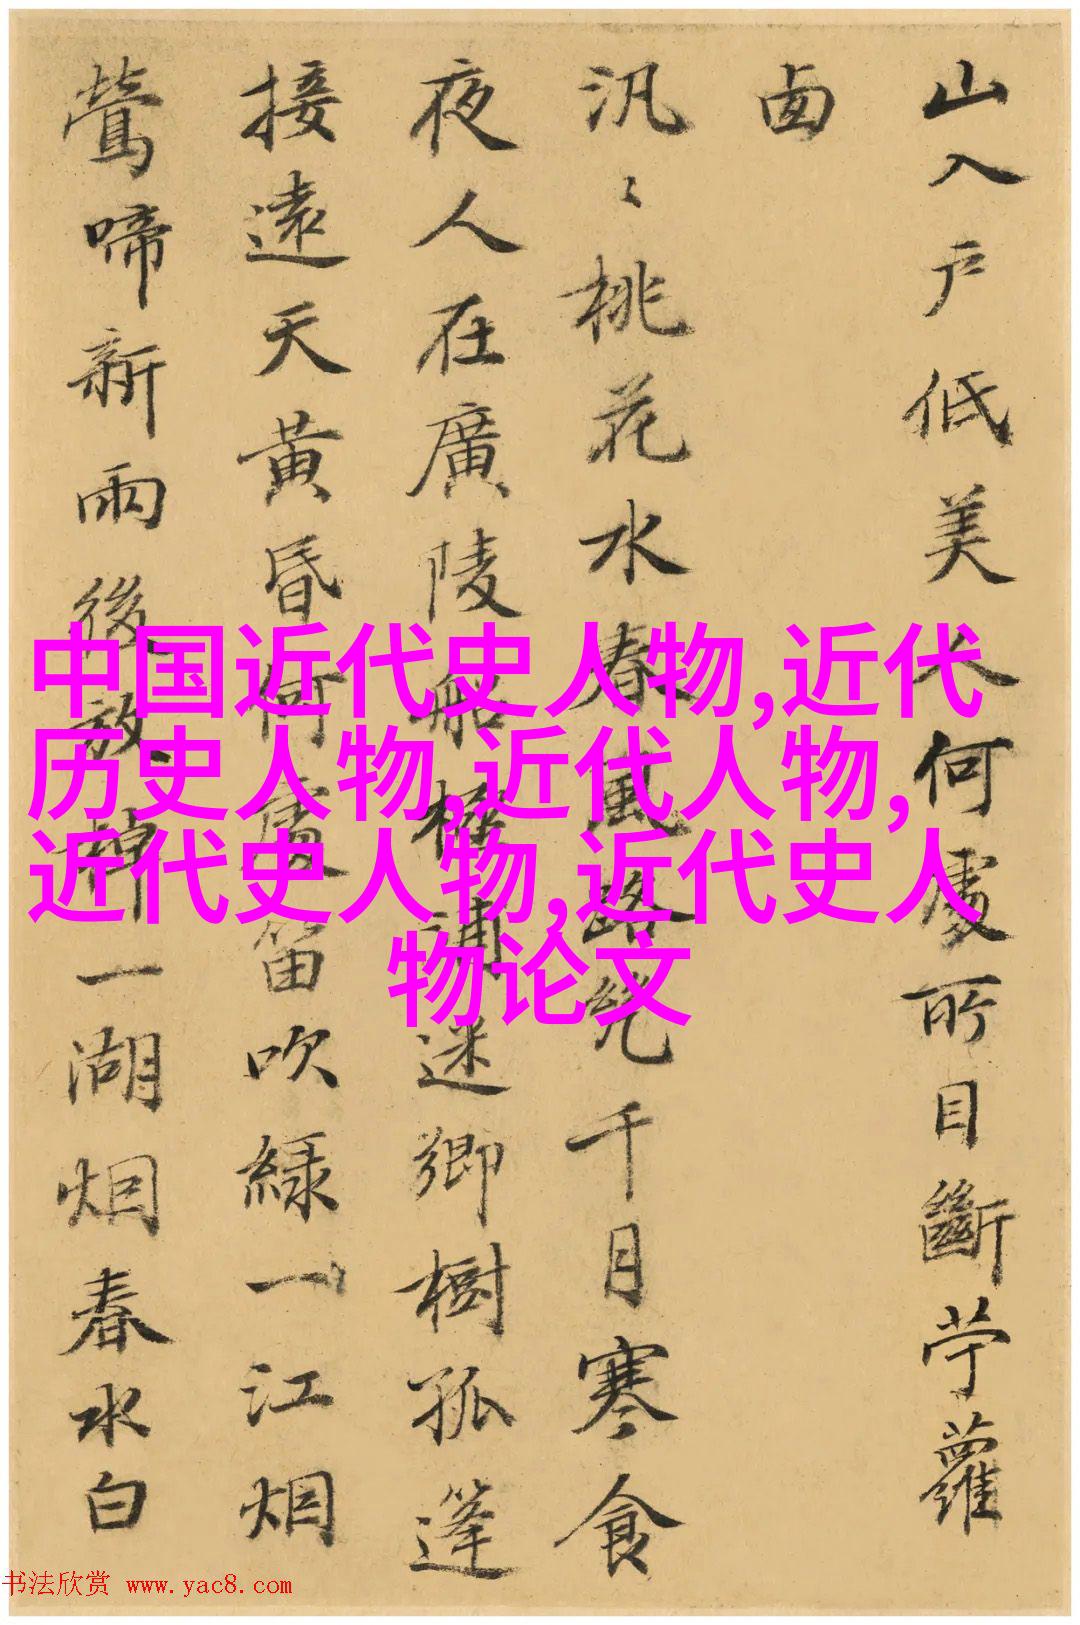 山入户低美人何處所目斷苧蘿
西
汎〻桃花水春風路繞千月寒食
夜人在廣陵船極浦迷鄉樹孤篷
接遠天黃昏何處笛吹綠一江烟
鶯啼新雨後放棹一湖烟春水白
中国近代史人物,近代
历史人物,近代人物,
近代史人物,近代史人
物论文
书法欣赏 www.yac8.com